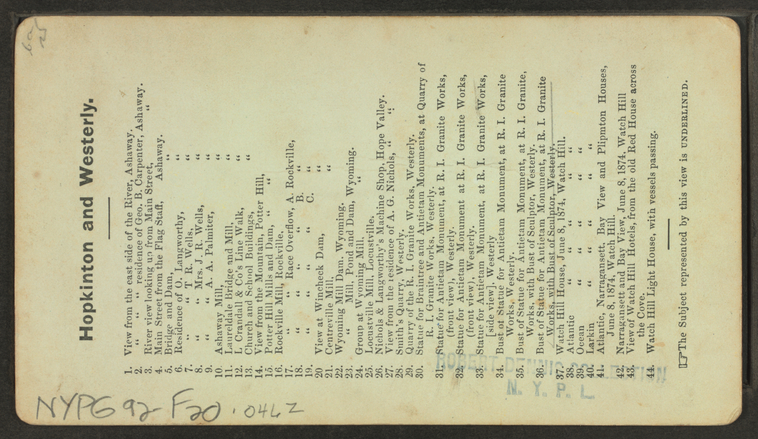 Hopkinton and Westerly.
1. View from the east side of the River, Ashaway.
2. " " " residence of Geo. B. Carpenter, Ashaway.
3. River view looking up from Main Street, "
4. Main Street from the Flag Staff, Ashaway.
5. Bridge and Mill, "
6. Residence of O. Langworthy, "
7. " " T R. Wells, "
8. " " Mrs. J R. Wells, "
9. " " A. A. Palmiter, "
10. Ashaway Mill, "
11. Laureldale Bridge and Mill, "
12. L Crandall & Co's Line Walk, "
13. Church and School Buildings, "
14. View from the Mountain, Potter Hill,
15. Potter Hill Mills and Dam, " "
16. Rockville Mill, Rockville.
17. " " Race Overflow, A. Rockville,
18. " " " " B. "
19. " " " " C. "
20 View at Wincheck Dam, "
21. Centreville Mill, "
22. Wyoming Mill Dam. Wyoming.
23. " Mill, Pond and Dam, Wyoming.
24. Group at Wyoming Mill, "
25. Locustville Mill, Locustville.
26. Nichols & Langworthy's Machine Shop, Hope Valley.
27. View from the residence of A. G. Nichols, " "
28. Smith's Quarry, Westerly.
29. Quarry of the R. I. Granite Works, Westerly.
30. Statue for Braintree and Antietam Monuments, at Quarry of
R. I. Granite Works, Westerly.
31. Statue for Antietam Monument, at R. I. Granite Works,
(front view), Westerly.
32. Statue for Antietam Monument at R. I. Granite Works,
(front view), Westerly.
33. Statue for Antietam Monument, at R. I. Granite Works,
(side view), Westerly
34. Bust of Statue for Antietam Monument, at R. I. Granite
Works, Westerly.
35. Bust of Statue for Antietam Monument, at R. I. Granite,
Works, with Bust of Sculptor, Westerly.
36. Bust of Statue of Antietam Monument, at R. I. Granite
Works, with Bust of Sculptor, Westerly.
37. Watch Hill House, June 8, 1874, Watch Hill.
38. Atlantic " " " "
39. Ocean " " " "
40. Larkin " " " "
41. Atlantic, Narragansett, Bay View and Plipmton Houses,
June 8, 1874, Watch Hill.
42. Narragansett and Bay View, June 8, 1874, Watch Hill
43. View of Watch Hill Hotels, from the old Red House across
the Cove.
44. Watch Hill Light House, with vessels passing.
☞The Subject represented by this view is UNDERLINED.
N. Y. P. L.
NYPG92-F20.0462